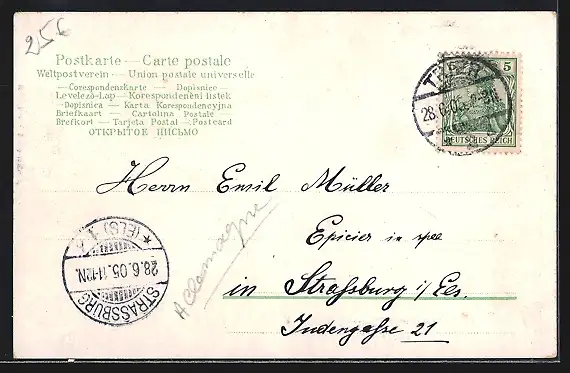 256
Postkarte — Carte postale
Weltpostverein — Union postale universelle
— Corespondenzkarte — Dopisnice —
Levelező-Lap — Korespondenční lístek
— Dopisnica — Karta Korespondencyjna
Briefkaart — Cartolina Postale —
Brefkort — Tarjeta Postal — Postcard
ОТКРЫТОЕ ПИСЬМО
5
DEUTSCHES REICH
TRIER
28.6.05
Herrn Emil Müller
Epicier in
in Strassburg i/Els.
Judengasse 21
Allemagne
* (ELS) 1
28.6.05.11-12N.
STRASSBURG